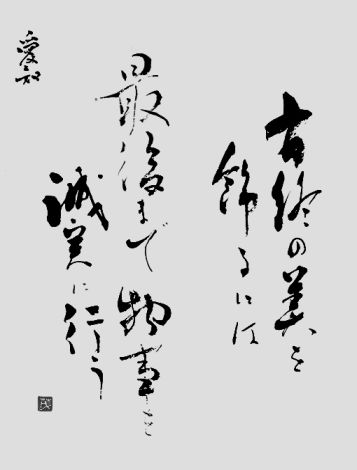 有終の美を
飾るには
最後まで物事を
誠実に行う
愛知